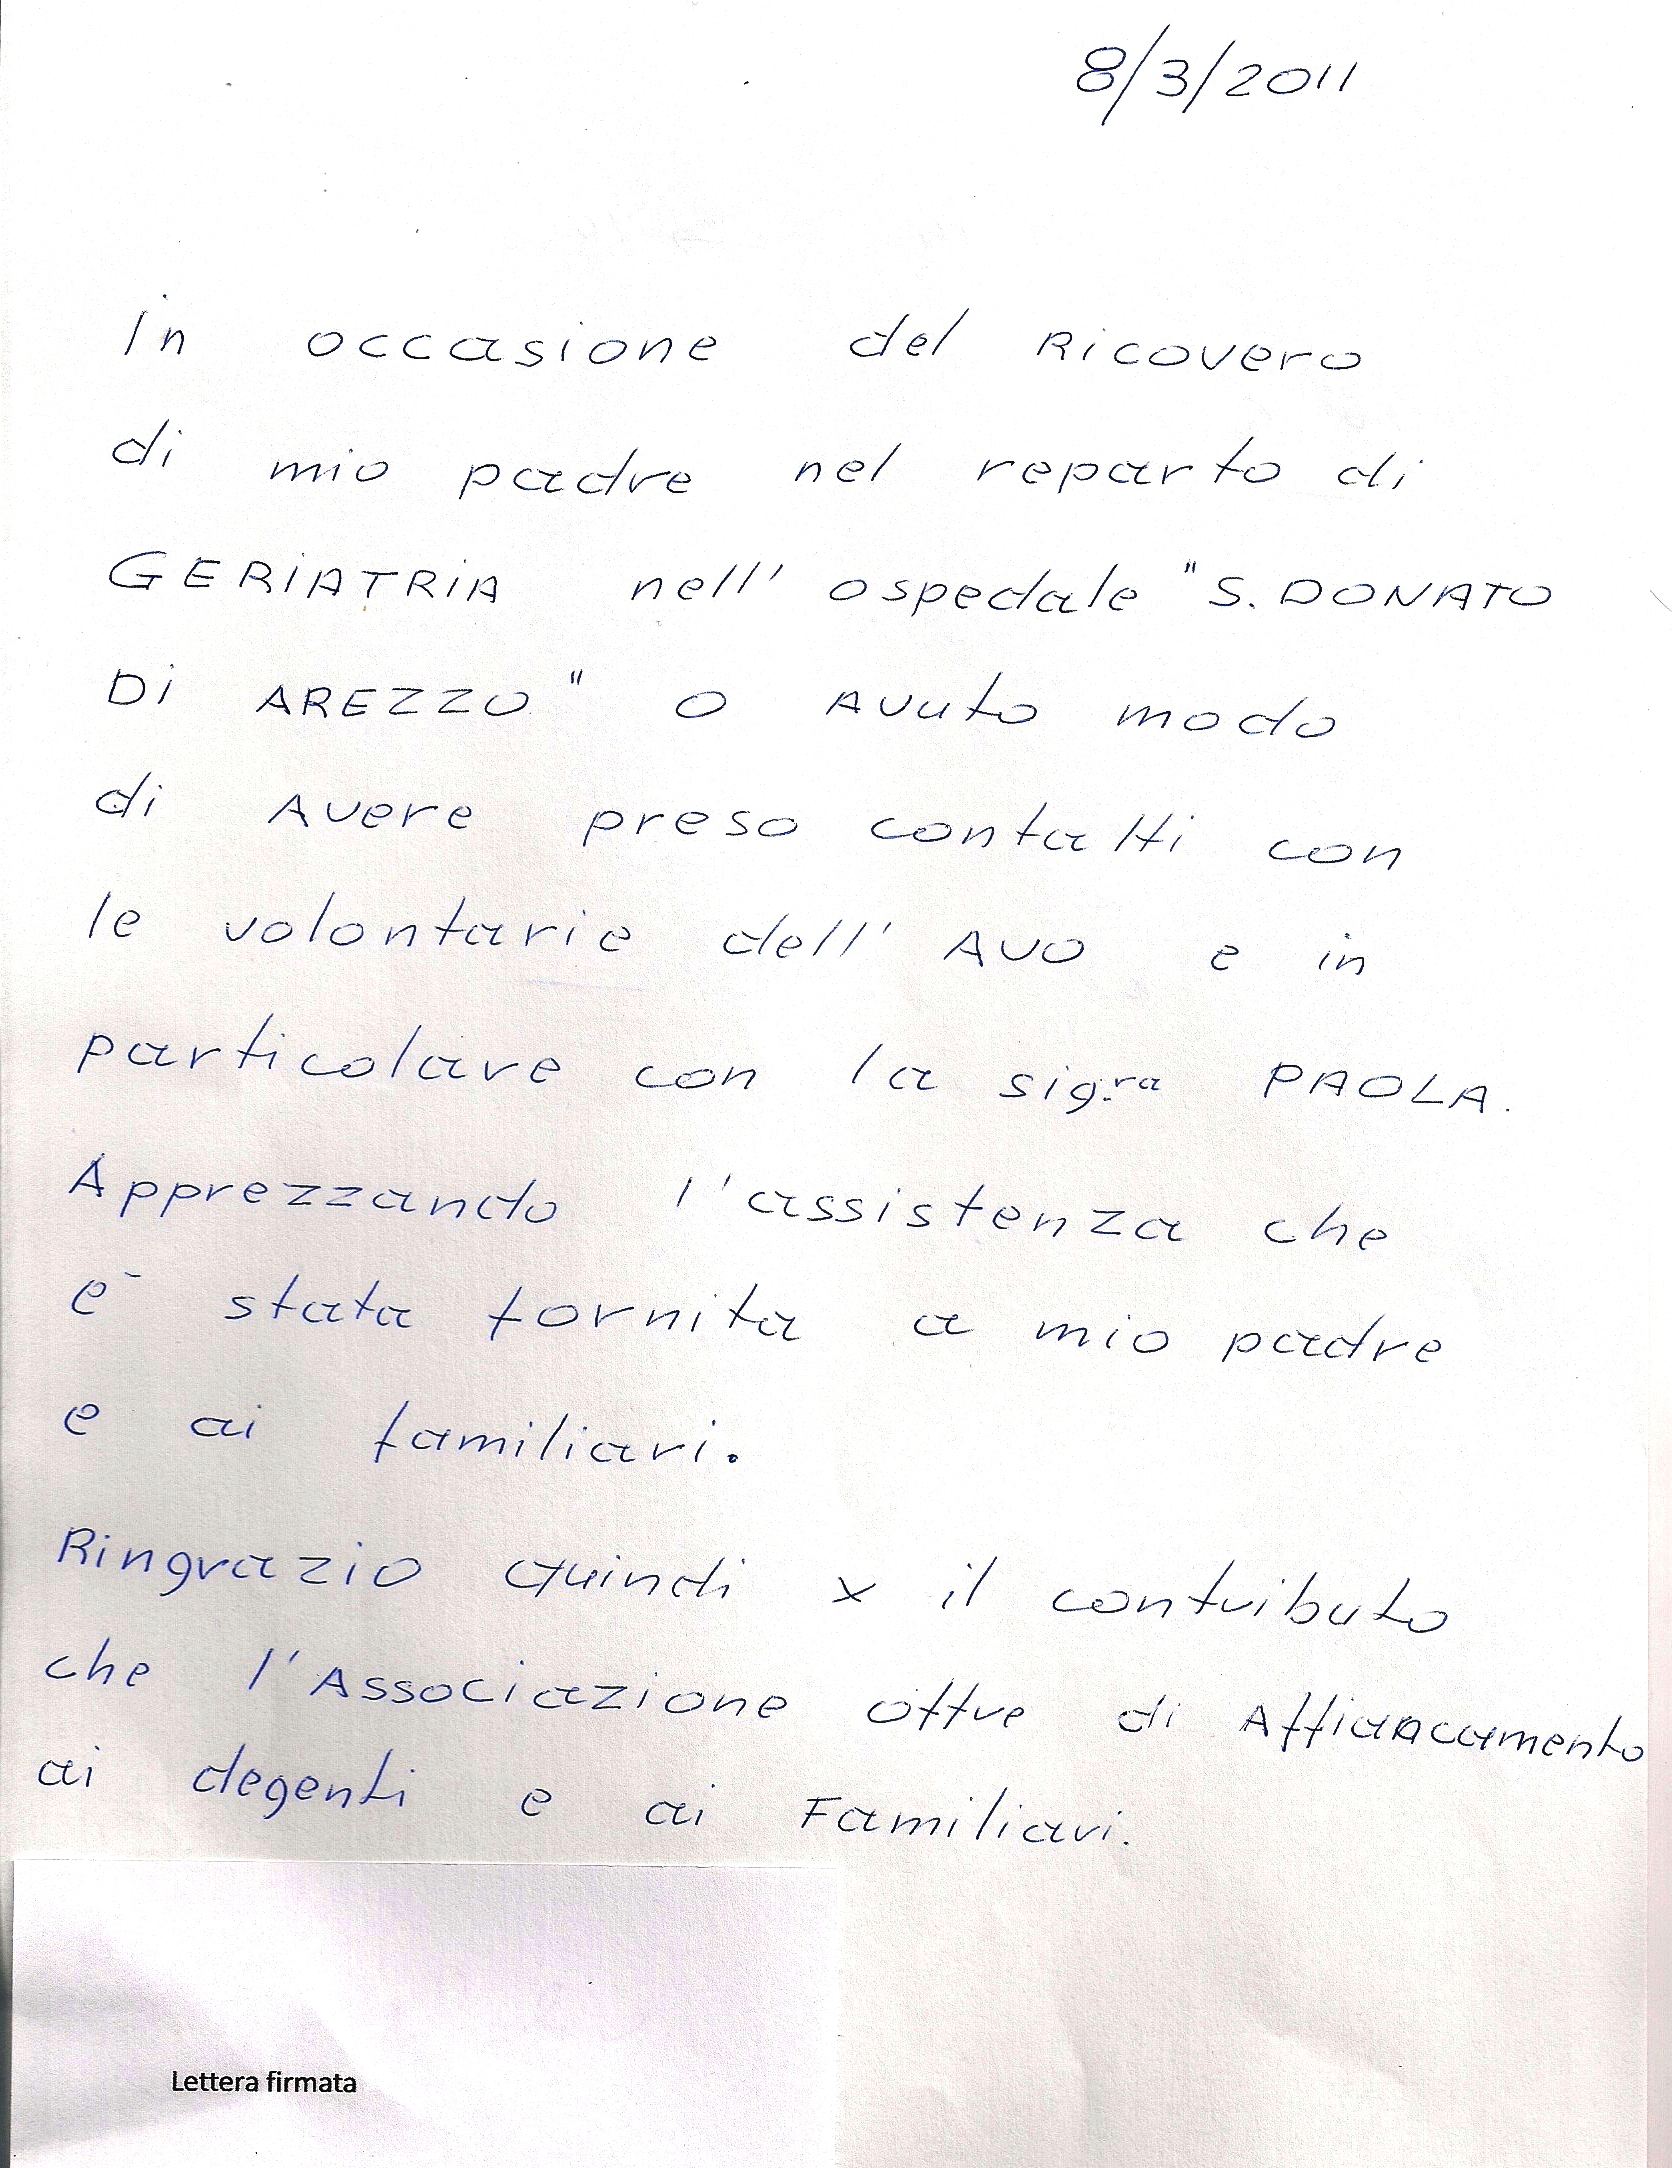 8/3/2011
In occasione del Ricovero
di mio padre nel reparto di
GERiATRiA nell' ospedale "S. DONATO
Di AREZZO" o Avuto modo
di Avere preso contatti con
le volontarie dell' AVO e in
particolare con la sig.ra PAOLA.
Apprezzando l'assistenza che
è stata fornita a mio padre
e ai familiari.
Ringrazio quindi x il contributo
che l'Associazione offre di Affiancamento
ai degenti e ai Familiari.
Lettera firmata